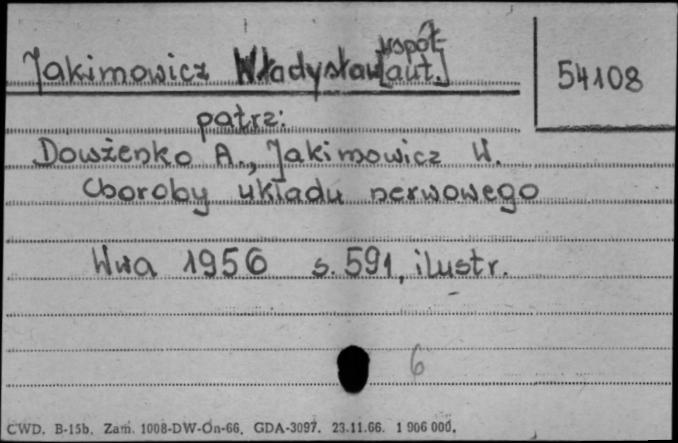 Jakimowicz Władysław [współ-
aut.]
54108
patrz:
Dowżenko A., Jakimowicz W.
Choroby układu nerwowego
Wwa 1956 s. 591, ilustr.
6
CWD. B-15b. Zam. 1008-DW-On-66. GDA-3097. 23.11.66. 1 906 000.